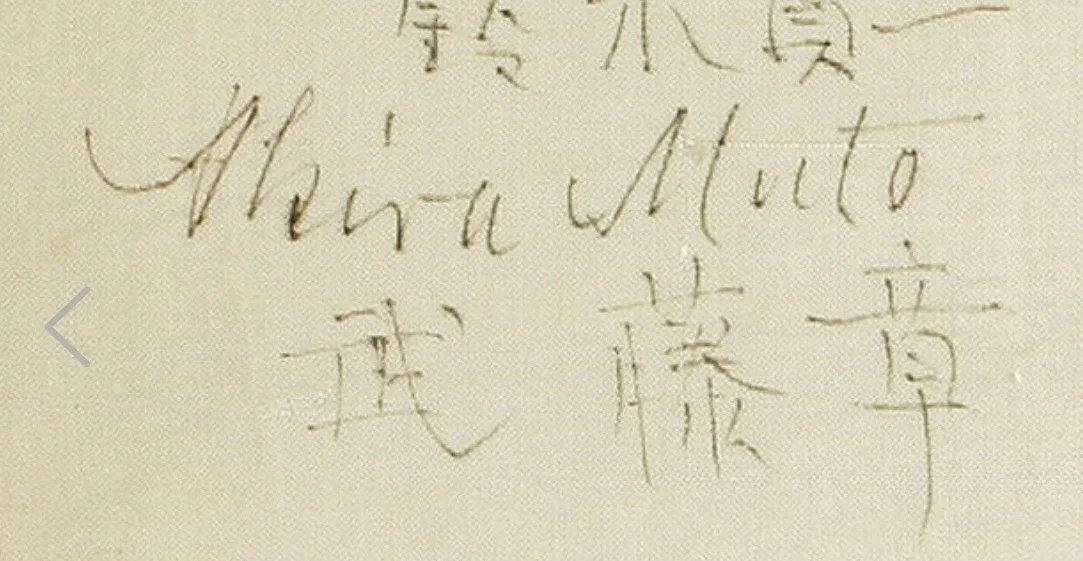 鈴木貞一
Akira Muto
武藤章